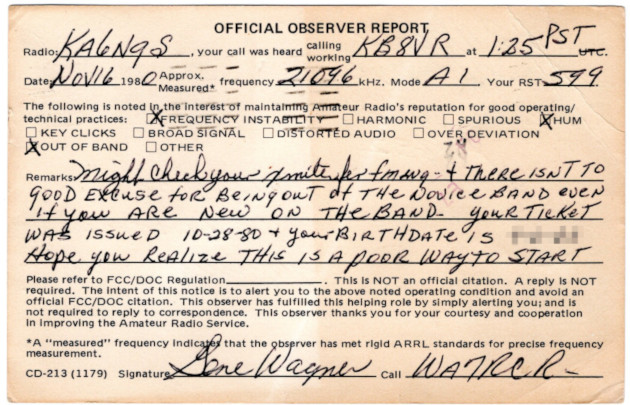 OFFICIAL OBSERVER REPORT
Radio: KA6NQS, your call was heard calling working KB8VR at 1:25 PST UTC.
Date: NOV 16 1980 Approx. Measured* frequency 21096 kHz. Mode A1, Your RST: 599
The following is noted in the interest of maintaining Amateur Radio's reputation for good operating/
technical practices: FREQUENCY INSTABILITY HARMONIC SPURIOUS HUM
KEY CLICKS BROAD SIGNAL DISTORTED AUDIO OVER DEVIATION
OUT OF BAND OTHER
Remarks: Might check your xmiter for & THERE ISN'T TO
GOOD EXCUSE FOR BEING OUT OF THE NOVICE BAND EVEN
if you ARE NEW ON THE BAND - your TICKET
WAS ISSUED 10-28-80 & your BIRTHDATE IS
Hope you REALIZE THIS IS A POOR WAY TO START
Please refer to FCC/DOC Regulation . This is NOT an official citation. A reply is NOT
required. The intent of this notice is to alert you to the above noted operating condition and avoid an
official FCC/DOC citation. This observer has fulfilled this helping role by simply alerting you; and is
not required to reply to correspondence. This observer thanks you for your courtesy and cooperation
in improving the Amateur Radio Service.
*A "measured" frequency indicates that the observer has met rigid ARRL standards for precise frequency
measurement.
CD-213 (1179) Signature Gene Wagner Call WA7RCR